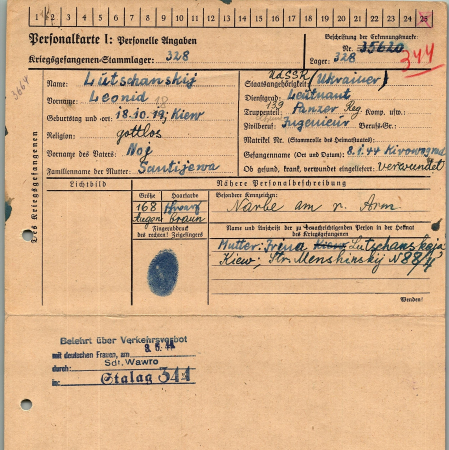 1 2 3 4 5 6 7 8 9 10 11 12 13 14 15 16 17 18 19 20 21 22 23 24 25
Personalkarte I: Personelle Angaben
Kriegsgefangenen-Stammlager: 328
Beschriftung der Erkennungsmarke
Nr. 35620
344
Lager: 328
3664
Des Kriegsgefangenen
Name: Lutschanskij
Vorname: Leonid
Geburtstag und -ort: 18.10.19, Kiew
Religion: gottlos
Vorname des Vaters: Noj
Familienname der Mutter:
Staatsangehörigkeit: UdSSR (Ukrainer)
Dienstgrad: Leutnant
Truppenteil: 139 Panzer Reg. Komp. usw.:
Zivilberuf: Ingenieur Berufs-Gr.:
Matrikel Nr. (Stammrolle des Heimatstaates):
Gefangennahme (Ort und Datum): 8.1.44 Kirowograd
Ob gesund, krank, verwundet eingeliefert: verwundet
Lichtbild
Nähere Personalbeschreibung
Größe
Haarfarbe
Besondere Kennzeichen:
168
Augen braun
Narbe am r. Arm
Fingerabdruck
des rechten! Zeigefingers
Name und Anschrift der zu benachrichtigenden Person in der Heimat
des Kriegsgefangenen
Mutter: Irena Kiew Lutschanskaja
Kiew; Str. Menshinskij N 88/4
Wenden!
Belehrt über Verkehrsverbot
mit deutschen Frauen, am
durch: Sdf. Wawro
in: Stalag 344